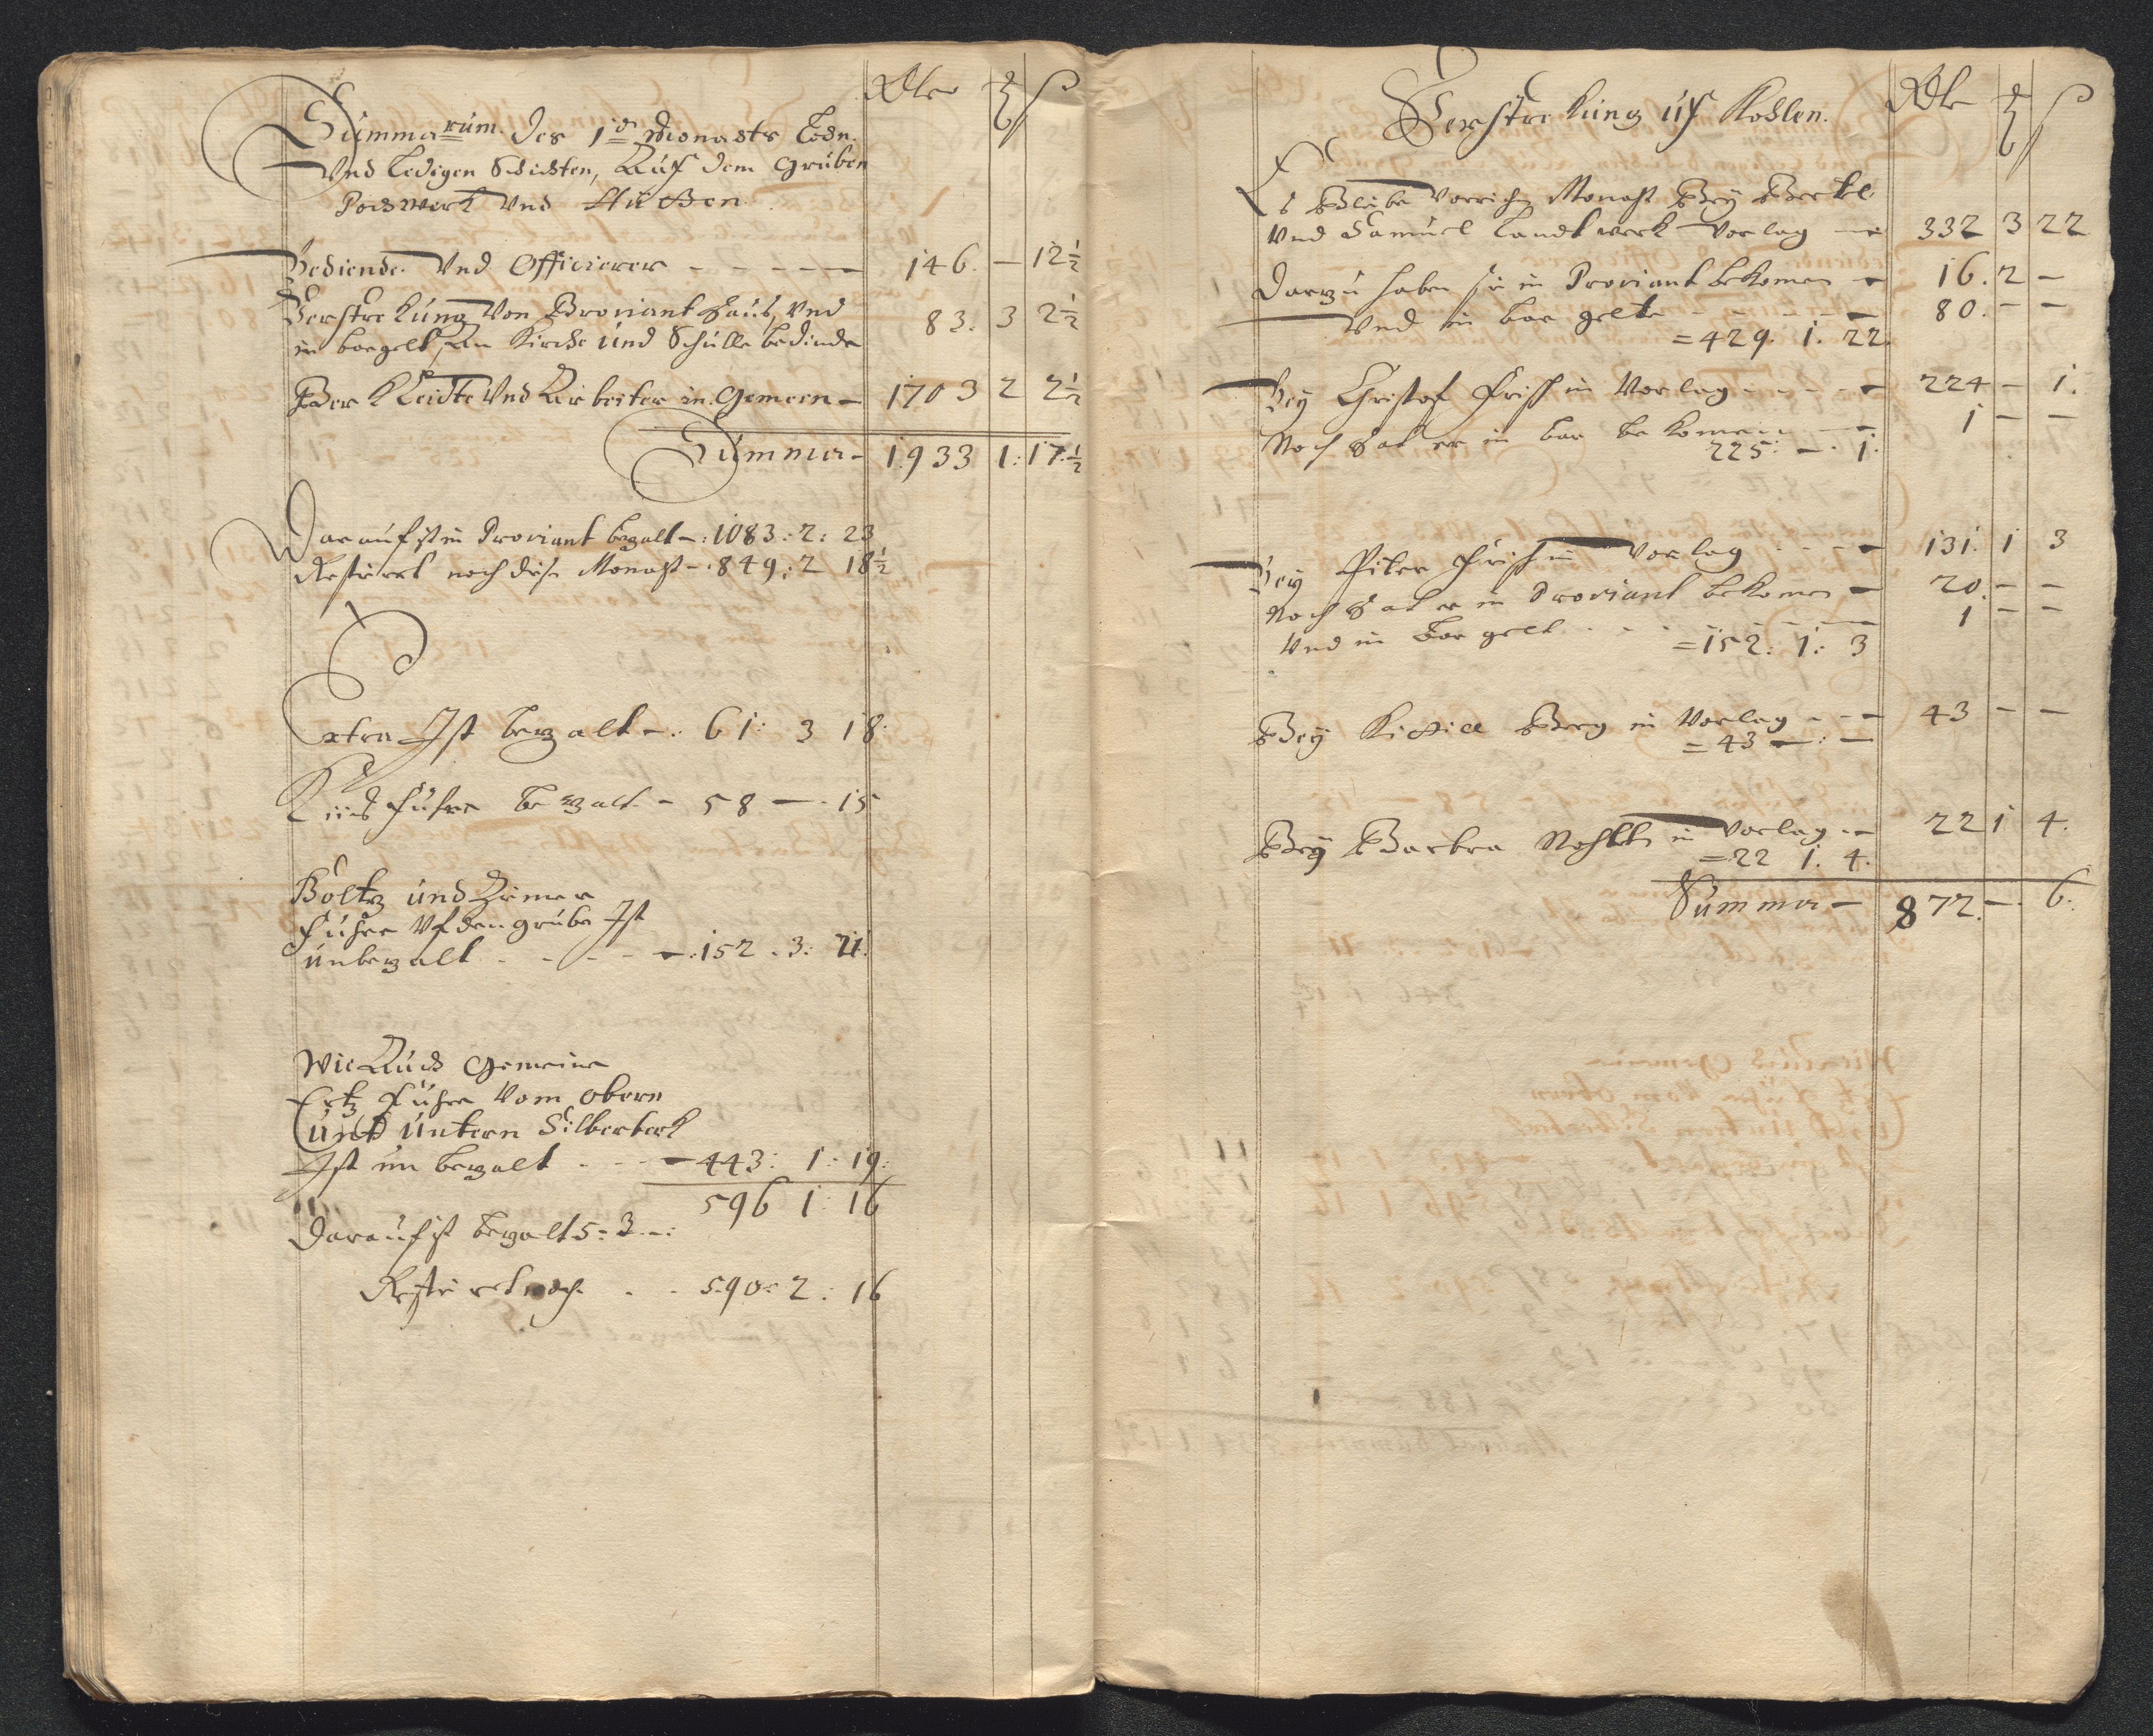 Rdlr ß
Summarum des 1 Monahts Lohn
Vnd Ledigen Schichten, Auf dem Gruben
Pochwerk Vnd Hütten
Bediende Vnd Officierer - - - - 146. — 12½
Verstrekung Von Proviant Haus, Vnd
in baargelt an Kirche und Schulle bedinde 83. 3 2½
Berk Leidte Vnd Arbeiter in Gemeen — 1703 2 2½
Summa — 1933 1: 17½
Darauf ist in Proviant bezalt —: 1083: 2: 23
Restieret noch dise Monaht —: 849: 2 18½
Extra Ist bezalt —: 61: 3 18:
Fuhre bezalt — 58 —. 15
Holtz und Zimer
Fuhre Vf den grube Ist
unbezalt - - - - —: 152. 3: 21:
Wie Auch Gemeine
Ertz Fuhre Vom obern
und untern Silberberk
Ist un bezalt - - - — 443: 1: 19:
596 1: 16
Darauf ist bezalt 5: 3 —:
Restieret noch . . 590: 2: 16
Rdlr ß
Verstrekung uf Kohlen.
Es Bleibe Vorrich Monaht Bey
Vnd Samuel Landtwerk Vorlag — 332 3 22
Darzu haben sie in Proviant bekomen — 16. 2 —
Vnd in bar gelte - - - — 80. — —
= 429. 1. 22.
Bey Christof Frisch in Vorlag - - - — 224 — 1.
Noch hat er in bar bekomen — 1 — —
225: —. 1.
Bey Piter Frisch in Vorlag - - - — 131. 1 3
Noch hat er in Proviant bekomen — 20. — —
Vnd in bar gelt - - - — 1 — —
= 152: 1: 3
Bey Berg in Vorlag - - — 43 — —
= 43 —: —
Bey Barbra in Vorlag — 22 1 4.
= 22 1. 4.
Summa — 872. —. 6.